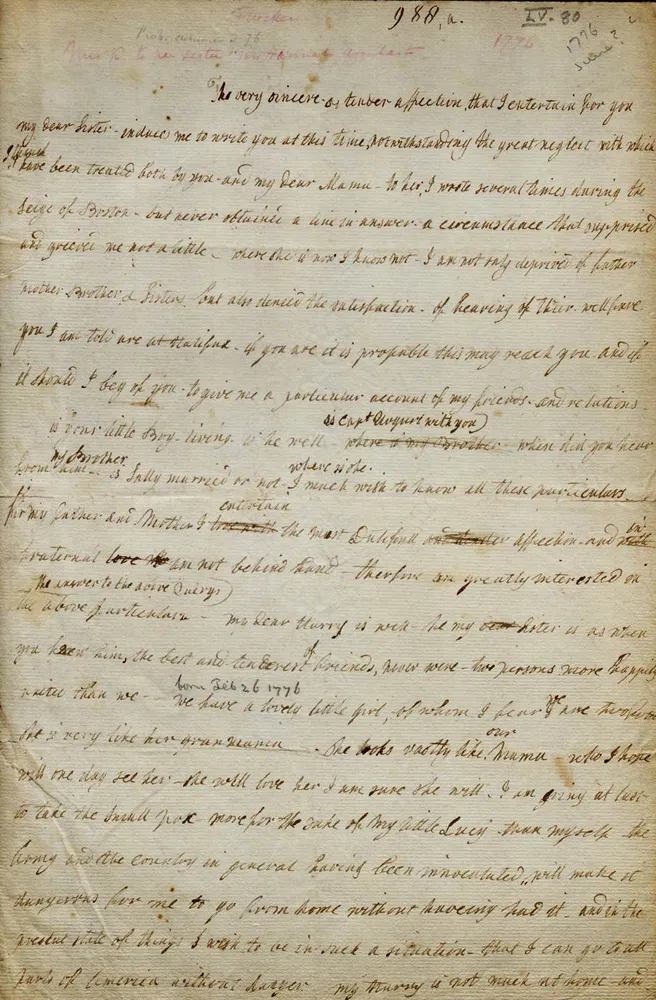 Flucker 988,a. LV-80
1776
1776
June?
The very sincere & tender affection, that I entertain for you
my dear Sister - induces me to write you at this time, notwithstanding the great neglect with which
I have been treated both by you - and my dear Mama - to her I wrote several times during the
Seige of Boston - but never obtained a line in answer - a circumstance that surprised
and grieved me not a little - where she is now I know not - I am not only deprived of father
mother Brother, & Sisters but also denied the satisfaction - of hearing of their wellfare
you I am told are at Halifax - if you are it is propable this may reach you - and if
it should I beg of you - to give me a particular account of my friends - and relations -
is Capt Urquart with you
is your little Boy - living is he well - where is my Brother - when did you hear
my Brother where is he
from him - is Sally married or not - I much wish to know all these particulars
entertain
for my father and Mother I love with the most Dutifull and tender affection - and in with
fraternal love I am not behind hand - therefore am greatly interested in
the answer to the above Querys
the above particulars - my dear Harry is well - he my dear Sister is as when
you knew him, the best and tenderest of friends, never were - two persons more happily
born Feb 26 1776
united than we - we have a lovely little girl, of whom I fear we are too fond
our
she is very like her granmama - She looks vastly like Mama who I hope
will one day see her - she will love her I am sure she will - I am going at last
to take the small pox - more for the sake of my little Lucy - than myself - the
Army and the country in general having been innoculated, will make it
dangerous for me to go from home without haveing had it - and in the
present state of things I wish to be in such a situation - that I can go to all
parts of America without danger - my Harry is not much at home - and